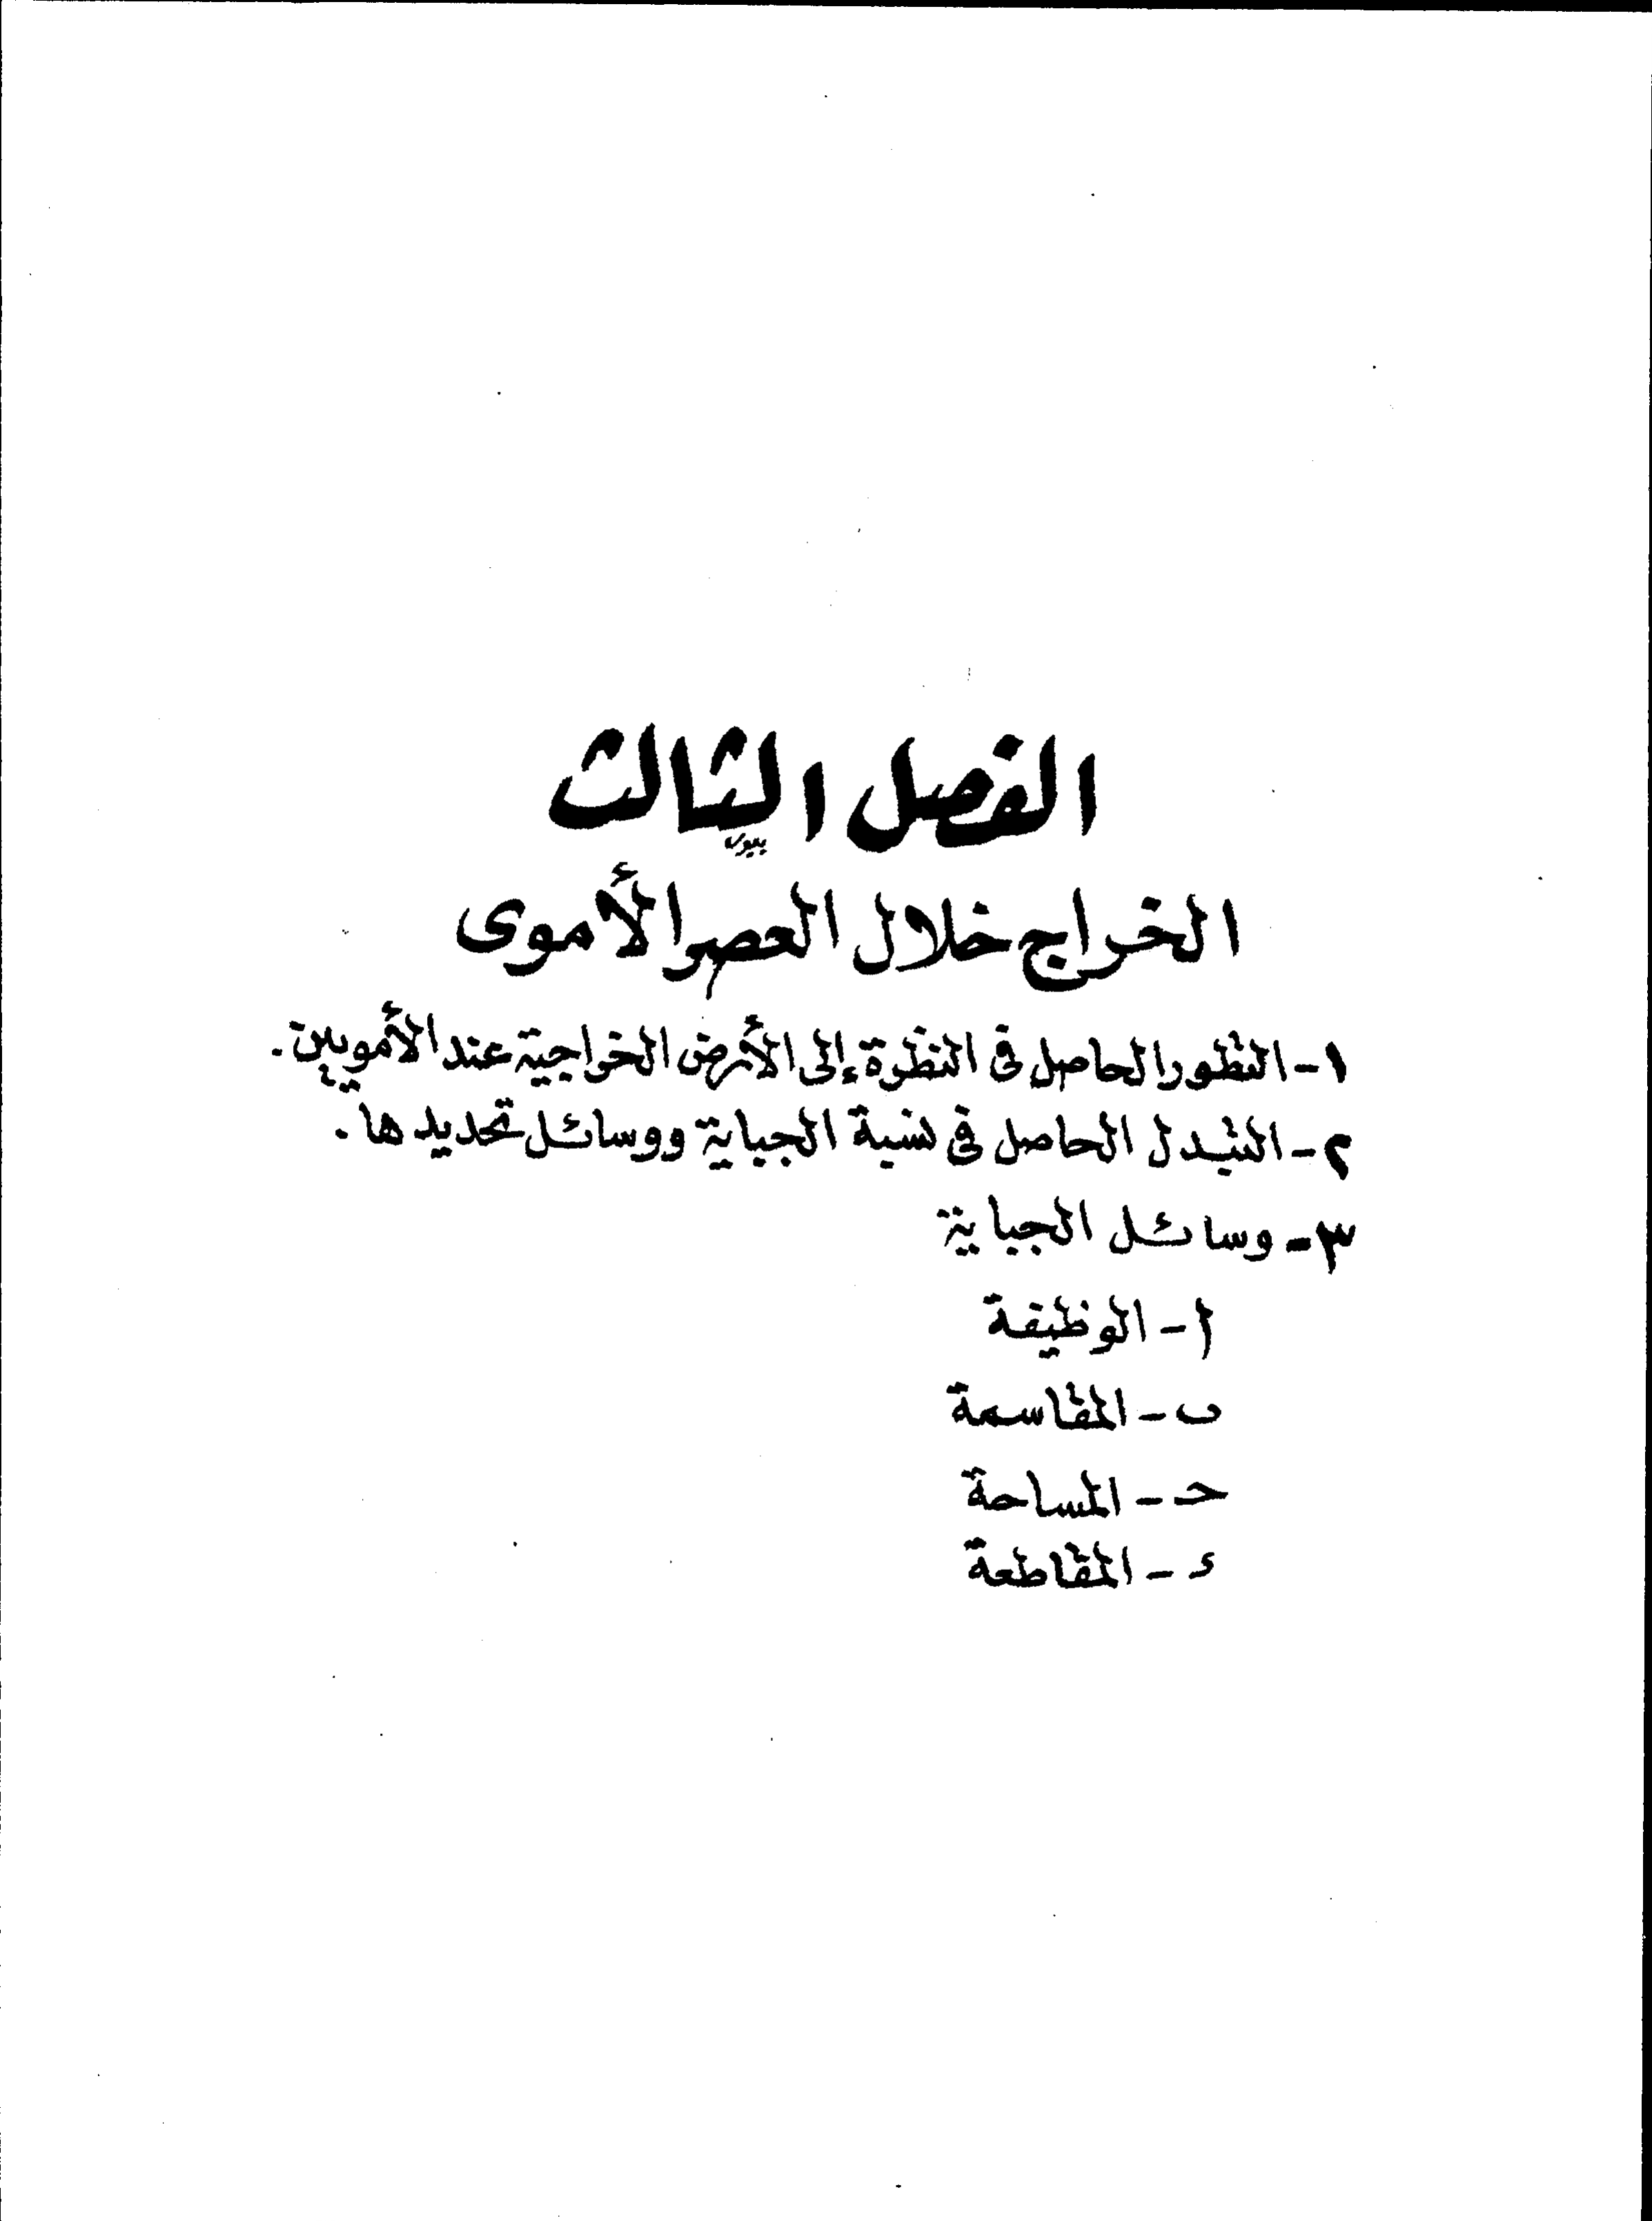 الفصل الثالث
الخراج خلال العصر الأموى
١- التطور الحاصل فى النظرة إلى الأرض الخراجية عند الأمويين.
٢- التبدل الحاصل فى نسبة الجباية ووسائل تحديدها.
٣- وسائل الجباية
أ- الوظيفة
ب- المقاسمة
حـ- المساحة
د- المقاطعة